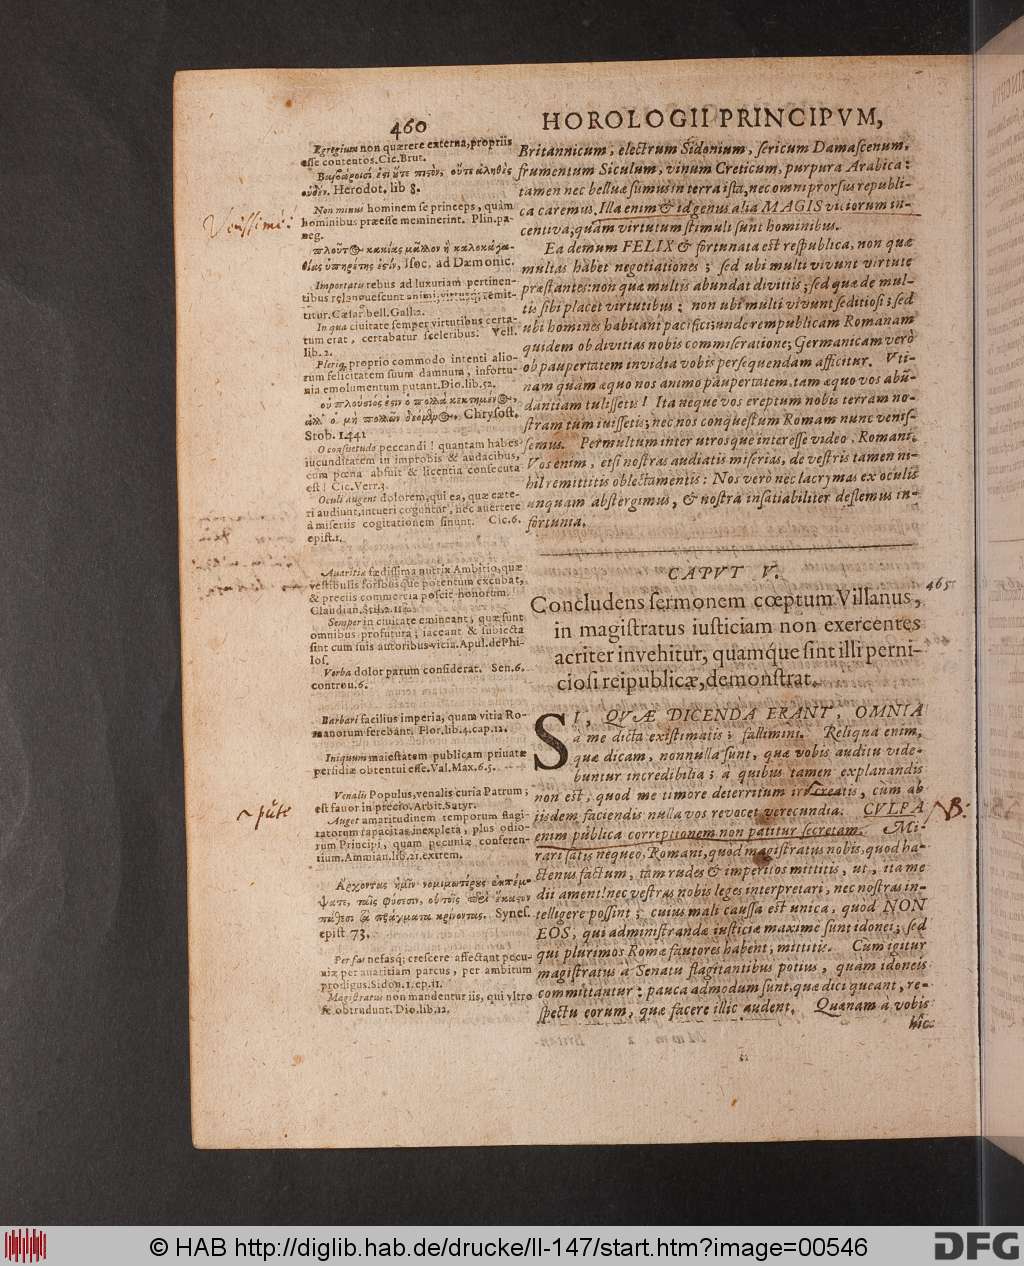 460 HOROLOGII PRINCIPVM,
Egregium non quærere externa, propriis
esse contentos. Cic. Brut.
Herodot. lib 8.
Non minus hominem se princeps, quàm
hominibus præesse meminerit. Plin. pa-
neg.
Isoc. ad Dæmonic.
Importatu rebus ad luxuriam pertinen-
tibus relanguescunt animi, virtusq; remit-
titur. Cæsar bell. Gall. 2.
In qua ciuitate semper virtutibus certa-
tum erat, certabatur sceleribus. Vell.
lib. 2.
Pleriq; proprio commodo intenti alio-
rum felicitatem suum damnum, infortu-
nia emolumentum putant. Dio. lib. 52.
Chrysost.
Stob. 1441
O consuetudo peccandi! quantam habes
iucunditatem in improbis & audacibus,
cum pœna absuit & licentia consecuta
est! Cic. Verr. 3.
Oculi augent dolorem, qui ea, quæ cæte-
ri audiunt, intueri coguntur, nec auertere
à miseriis cogitationem sinunt. Cic. 6.
epist. 1.
Auaritiæ fœdissima nutrix Ambitio, quæ
vestibulis foribusque potentum excubat,
& preciis commercia poscit honorum.
Claudian. Stil. 2.
Semper in ciuitate emineant; quæ sunt
omnibus profutura; iaceant & subiecta
sint cum suis autoribus vicia. Apul. de Phi-
los.
Verba dolor parum considerat. Sen. 6.
controu. 6.
Barbari facilius imperia, quam vitia Ro-
manorum ferebant. Flor. lib. 4. cap. 12.
Iniquum maiestatem publicam priuatæ
persidiæ obtentui esse. Val. Max. 6. 5.
Venalis Populus, venalis curia Patrum;
est fauor in precio. Arbit. Satyr.
Auget amaritudinem temporum flagi-
tatorum rapacitas inexpleta, plus odio-
rum Principi, quam pecuniæ conferen-
tium. Ammian. lib. 21. extrem.
Synes.
epist 73.
Per fas nefasq; crescere affectant pecu-
niæ per auaritiam parcus, per ambitum
prodigus. Sidon. 1. ep. 11.
Magistratus non mandentur iis, qui vltro
se obtrudunt. Dio. lib. 12.
Britannicum, electrum Sidonium, sericum Damascenum,
frumentum Siculum, vinum Creticum, purpura Arabica:
tamen nec belluæ sumus in terra ista, nec omni prorsus republi-
ca caremus. Illa enim & id genus alia MAGIS viciorum in-
centiva, quàm virtutum stimuli sunt hominibus.
Ea demum FELIX & fortunata est respublica, non quæ
multas habet negotiationes; sed ubi multi vivunt virtute
præstantes: non quæ multis abundat divitiis; sed quæ de mul-
tis sibi placet virtutibus: non ubi multi vivunt seditiosi; sed
ubi homines habitant pacifici; unde rempublicam Romanam
quidem ob divitias nobis commiseratione; Germanicam verò
ob paupertatem invidia vobis persequendam afficitur. Vti-
nam quàm æquo nos animo paupertatem, tam æquo vos abũ-
dantiam tulissetis! Ita neque vos ereptum nobis terram no-
stram tum iuissetis; nec nos conquestum Romam nunc venis-
semus. Permultum inter utrosque interesse video, Romani.
Vos enim, etsi nostras audiatis miserias, de vestris tamen ni-
hil remittitis oblectamentis: Nos verò nec lacrymas ex oculis
unquam abstergimus, & nostra insatiabiliter deflemus in-
fortunia.
CAPVT V.
465
Concludens sermonem cœptum Villanus,
in magistratus iusticiam non exercentes
acriter invehitur, quamque sint illi perni-
ciosi reipublicæ, demonstrat.
SI, QVÆ DICENDA ERANT, OMNIA
à me dicta existimatis; fallimini. Reliqua enim,
quæ dicam, nonnulla sunt, quæ vobis auditu vide-
buntur incredibilia; à quibus tamen explanandis
non est, quod me timore deterritum iri creatis, cùm ab
iisdem faciendis nulla vos revocet verecundia. CVLPA
enim publica correptionem non patitur secretam. Mi-
rari satis nequeo, Romani, quod magistratus nobis, quod ha-
ctenus factum, tam rudes & imperitos mittitis, ut, ita me
dii ament! nec vestras nobis leges interpretari, nec nostras in-
telligere possint; cuius mali caussa est unica, quod NON
EOS, qui administrandæ iusticiæ maxime sunt idonei; sed
qui plurimos Romæ fautores habent, mittitis. Cum igitur
magistratus à Senatu flagitantibus potius, quàm idoneis
committantur: pauca admodum sunt, quæ dici queant, re-
spectu eorum, quæ facere illic audent. Quænam à vobis
hîc
© HAB http://diglib.hab.de/drucke/ll-147/start.htm?image=00546
DFG